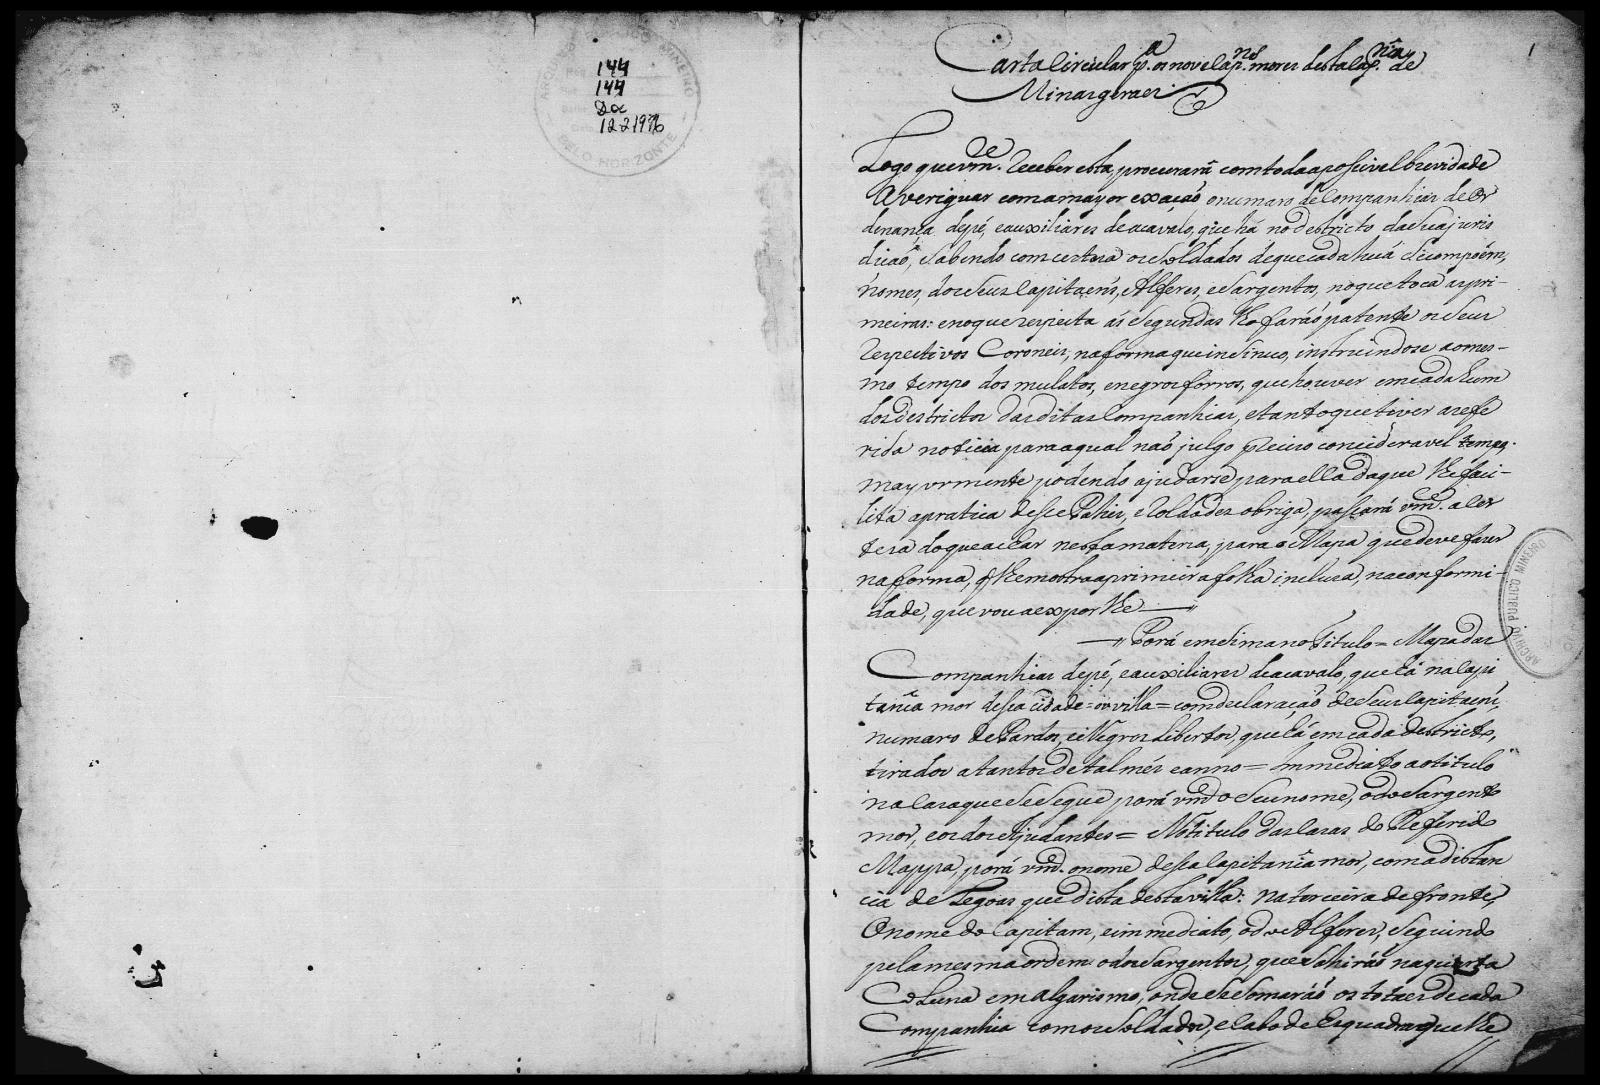 ARQUIVO PUBLICO MINEIRO
BELO HORIZONTE
144
144
Da
12 2 1976
1
Carta Circular p.ª os nove Cap.ns mores desta Cap.nia de
Minas geraes
Logo que vm.ce receber esta, procurará com toda a possivel brevidade
Averiguar com a mayor exação o numaro de Companhias de Or
denança de pé, e auxiliares de acavalo, que há no destricto da Sua juris
dição, Sabendo com certeza os Soldados de que cada huá Se compoém,
nomes, dos Seus Capitaens, Alferes, e Sargentos, no que toca as pri-
meiras: e no que respeita ás Segundas lho faráo patente os Seus
respectivos Coroneis, na forma que insinuo, instruindose ao mes-
mo tempo dos mulatos, e negros forros, que houver em cada hum
dos destrictos das ditas Companhias, e tanto que tiver a refe
rida noticia para a qual naó julgo preciso concideravel tempo.
mayormente podendo ajudarse para ella da que lhe faci-
lita a pratica desse Pahis, e Soldados obriga, passará vm.ce a Cer
teza do que achar nesta materia, para o Mapa que deve fazer
na forma, q lhe mostra a primeira folha incluza, na conformi-
dade, que vou a expor lhe
Porá em Sima no Titulo = Mapa das
Companhias de pé, e auxiliares de acavalo, que há na Capi
tania mor dessa cidade = ou villa = com declaração de Seus Capitaens,
numaro de Pardos, e Negros Libertos, que há em cada destricto,
tirados a tantos de tal mes e anno = Immediato ao titulo
na Casa que Se Segue porá vm.ce o Seu nome, o do Sargento
mor, e os dos Ajudantes = No titulo das Casas do Referido
Mappa, porá vm.ce o nome dessa Capitania mor, com a distan
cia de Legoas que dista desta villa: na terceira de fronte,
O nome do Capitam, e immediato, o do Alferes, Seguindo
pela mesma ordem o dos Sargentos, que Sahirás na quarta
Coluna em algarismo, onde Se Somaráó os totaes de cada
Companhia com os Soldados, e Cabo de Esquadra que lhe
ARCHIVO PUBLICO MINEIRO